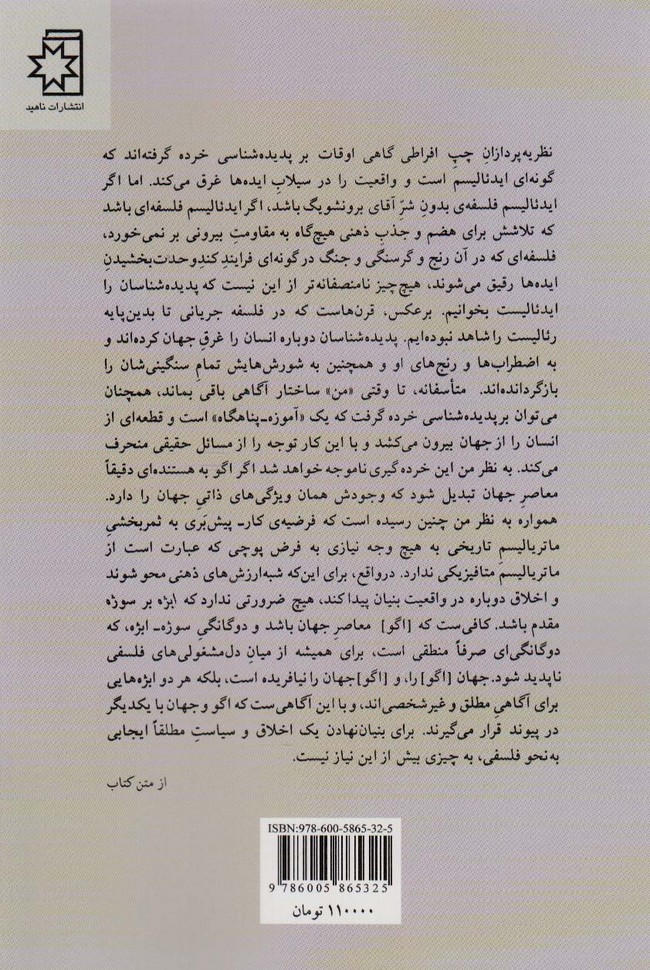 انتشارات ناهید
نظریه‌پردازانِ چپِ افراطی گاهی اوقات بر پدیده‌شناسی خرده گرفته‌اند که
گونه‌ای ایدئالیسم است و واقعیت را در سیلابِ ایده‌ها غرق می‌کند. اما اگر
ایدئالیسم فلسفه‌ی بدونِ شرّ آقای برونشویگ باشد، اگر ایدئالیسم فلسفه‌ای باشد
که تلاشش برای هضم و جذبِ ذهنی هیچ‌گاه به مقاومتِ بیرونی بر نمی‌خورد،
فلسفه‌ای که در آن رنج و گرسنگی و جنگ در گونه‌ای فرایندِ کندِ وحدت‌بخشیدنِ
ایده‌ها رقیق می‌شوند، هیچ‌چیز نامنصفانه‌تر از این نیست که پدیده‌شناسان را
ایدئالیست بخوانیم. برعکس، قرن‌هاست که در فلسفه جریانی تا بدین‌پایه
رئالیست را شاهد نبوده‌ایم. پدیده‌شناسان دوباره انسان را غرقِ جهان کرده‌اند و
به اضطراب‌ها و رنج‌های او و همچنین به شورش‌هایش تمامِ سنگینی‌شان را
بازگردانده‌اند. متأسفانه، تا وقتی «من» ساختار آگاهی باقی بماند، همچنان
می‌توان بر پدیده‌شناسی خرده گرفت که یک «آموزه‌ـ‌پناهگاه» است و قطعه‌ای از
انسان را از جهان بیرون می‌کشد و با این کار توجه را از مسائل حقیقی منحرف
می‌کند. به نظر من این خرده‌گیری ناموجه خواهد شد اگر اگو به هستنده‌ای دقیقاً
معاصرِ جهان تبدیل شود که وجودش همان ویژگی‌های ذاتیِ جهان را دارد.
همواره به نظر من چنین رسیده است که فرضیه‌ی کارـ پیش‌بَری به ثمربخشیِ
ماتریالیسمِ تاریخی به هیچ وجه نیازی به فرض پوچی که عبارت است از
ماتریالیسمِ متافیزیکی ندارد. درواقع، برای این‌که شبه‌ارزش‌های ذهنی محو شوند
و اخلاق دوباره در واقعیت بنیان پیدا کند، هیچ ضرورتی ندارد که ابژه بر سوژه
مقدم باشد. کافی‌ست که [اگو] معاصرِ جهان باشد و دوگانگیِ سوژه‌ـ ابژه، که
دوگانگی‌ای صرفاً منطقی است، برای همیشه از میانِ دل‌مشغولی‌های فلسفی
ناپدید شود. جهان [اگو] را، و [اگو] جهان را نیافریده است، بلکه هر دو ابژه‌هایی
برای آگاهیِ مطلق و غیرشخصی‌اند، و با این آگاهی‌ست که اگو و جهان با یکدیگر
در پیوند قرار می‌گیرند. برای بنیان‌نهادن یک اخلاق و سیاستِ مطلقاً ایجابی
به‌نحو فلسفی، به چیزی بیش از این نیاز نیست.
از متن کتاب
ISBN:978-600-5865-32-5
9 786005 865325
۱۱۰۰۰۰ تومان